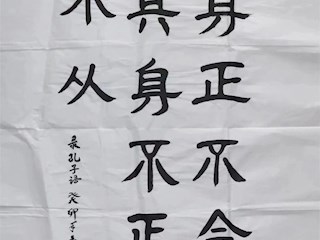 身正不令
其身不正
不从
录孔子语 癸卯